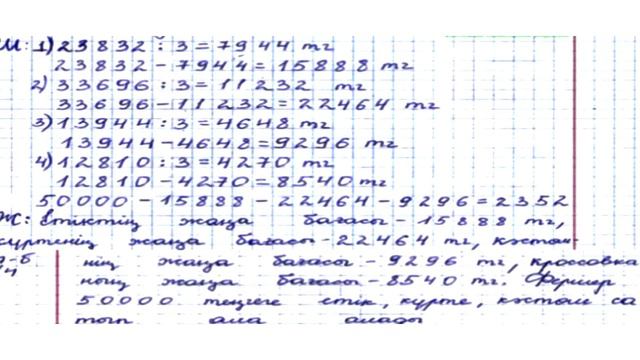 Ш: 1) 23832 : 3 = 7944 тг
23832 - 7944 = 15888 тг
2) 33696 : 3 = 11232 тг
33696 - 11232 = 22464 тг
3) 13944 : 3 = 4648 тг
13944 - 4648 = 9296 тг
4) 12810 : 3 = 4270 тг
12810 - 4270 = 8540 тг
50000 - 15888 - 22464 - 9296 = 2352
Ж: Етіктің жаңа бағасы - 15888 тг,
күртенің жаңа бағасы - 22464 тг, кәстөм
нің жаңа бағасы - 9296 тг, кроссовка
ның жаңа бағасы - 8540 тг. Фермер
50000 теңгеге етік, күрте, кәстөм са
тып ала алады